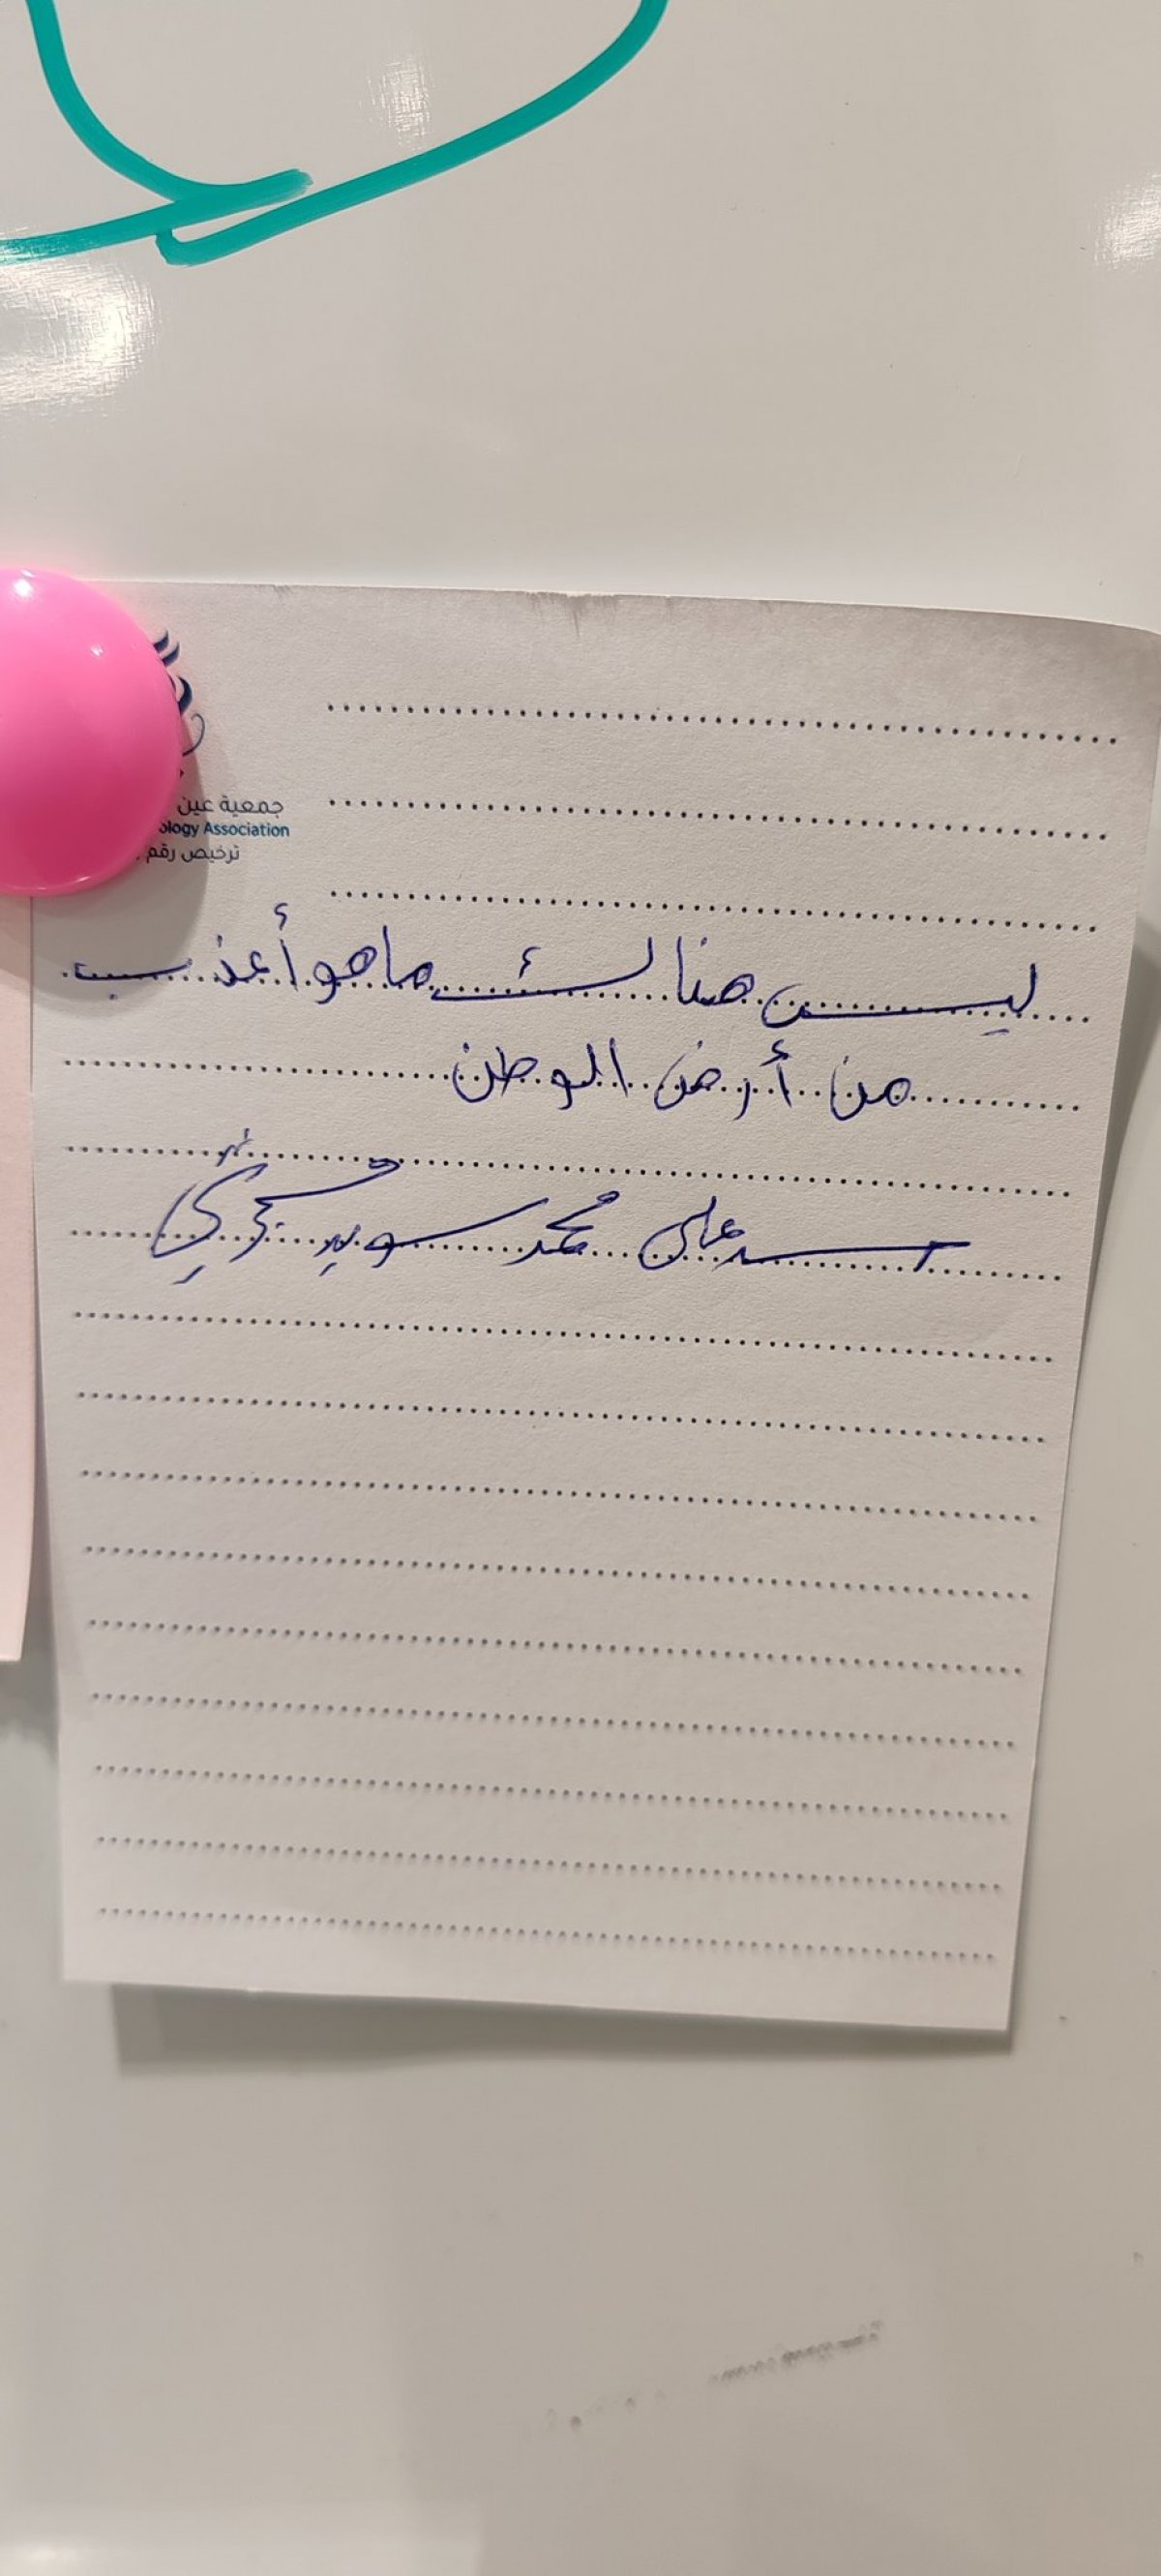 جمعية عين
ology Association
ترخيص رقم
ليس هنالك ما هو أعذب
من أرض الوطن
علي محمد سويد